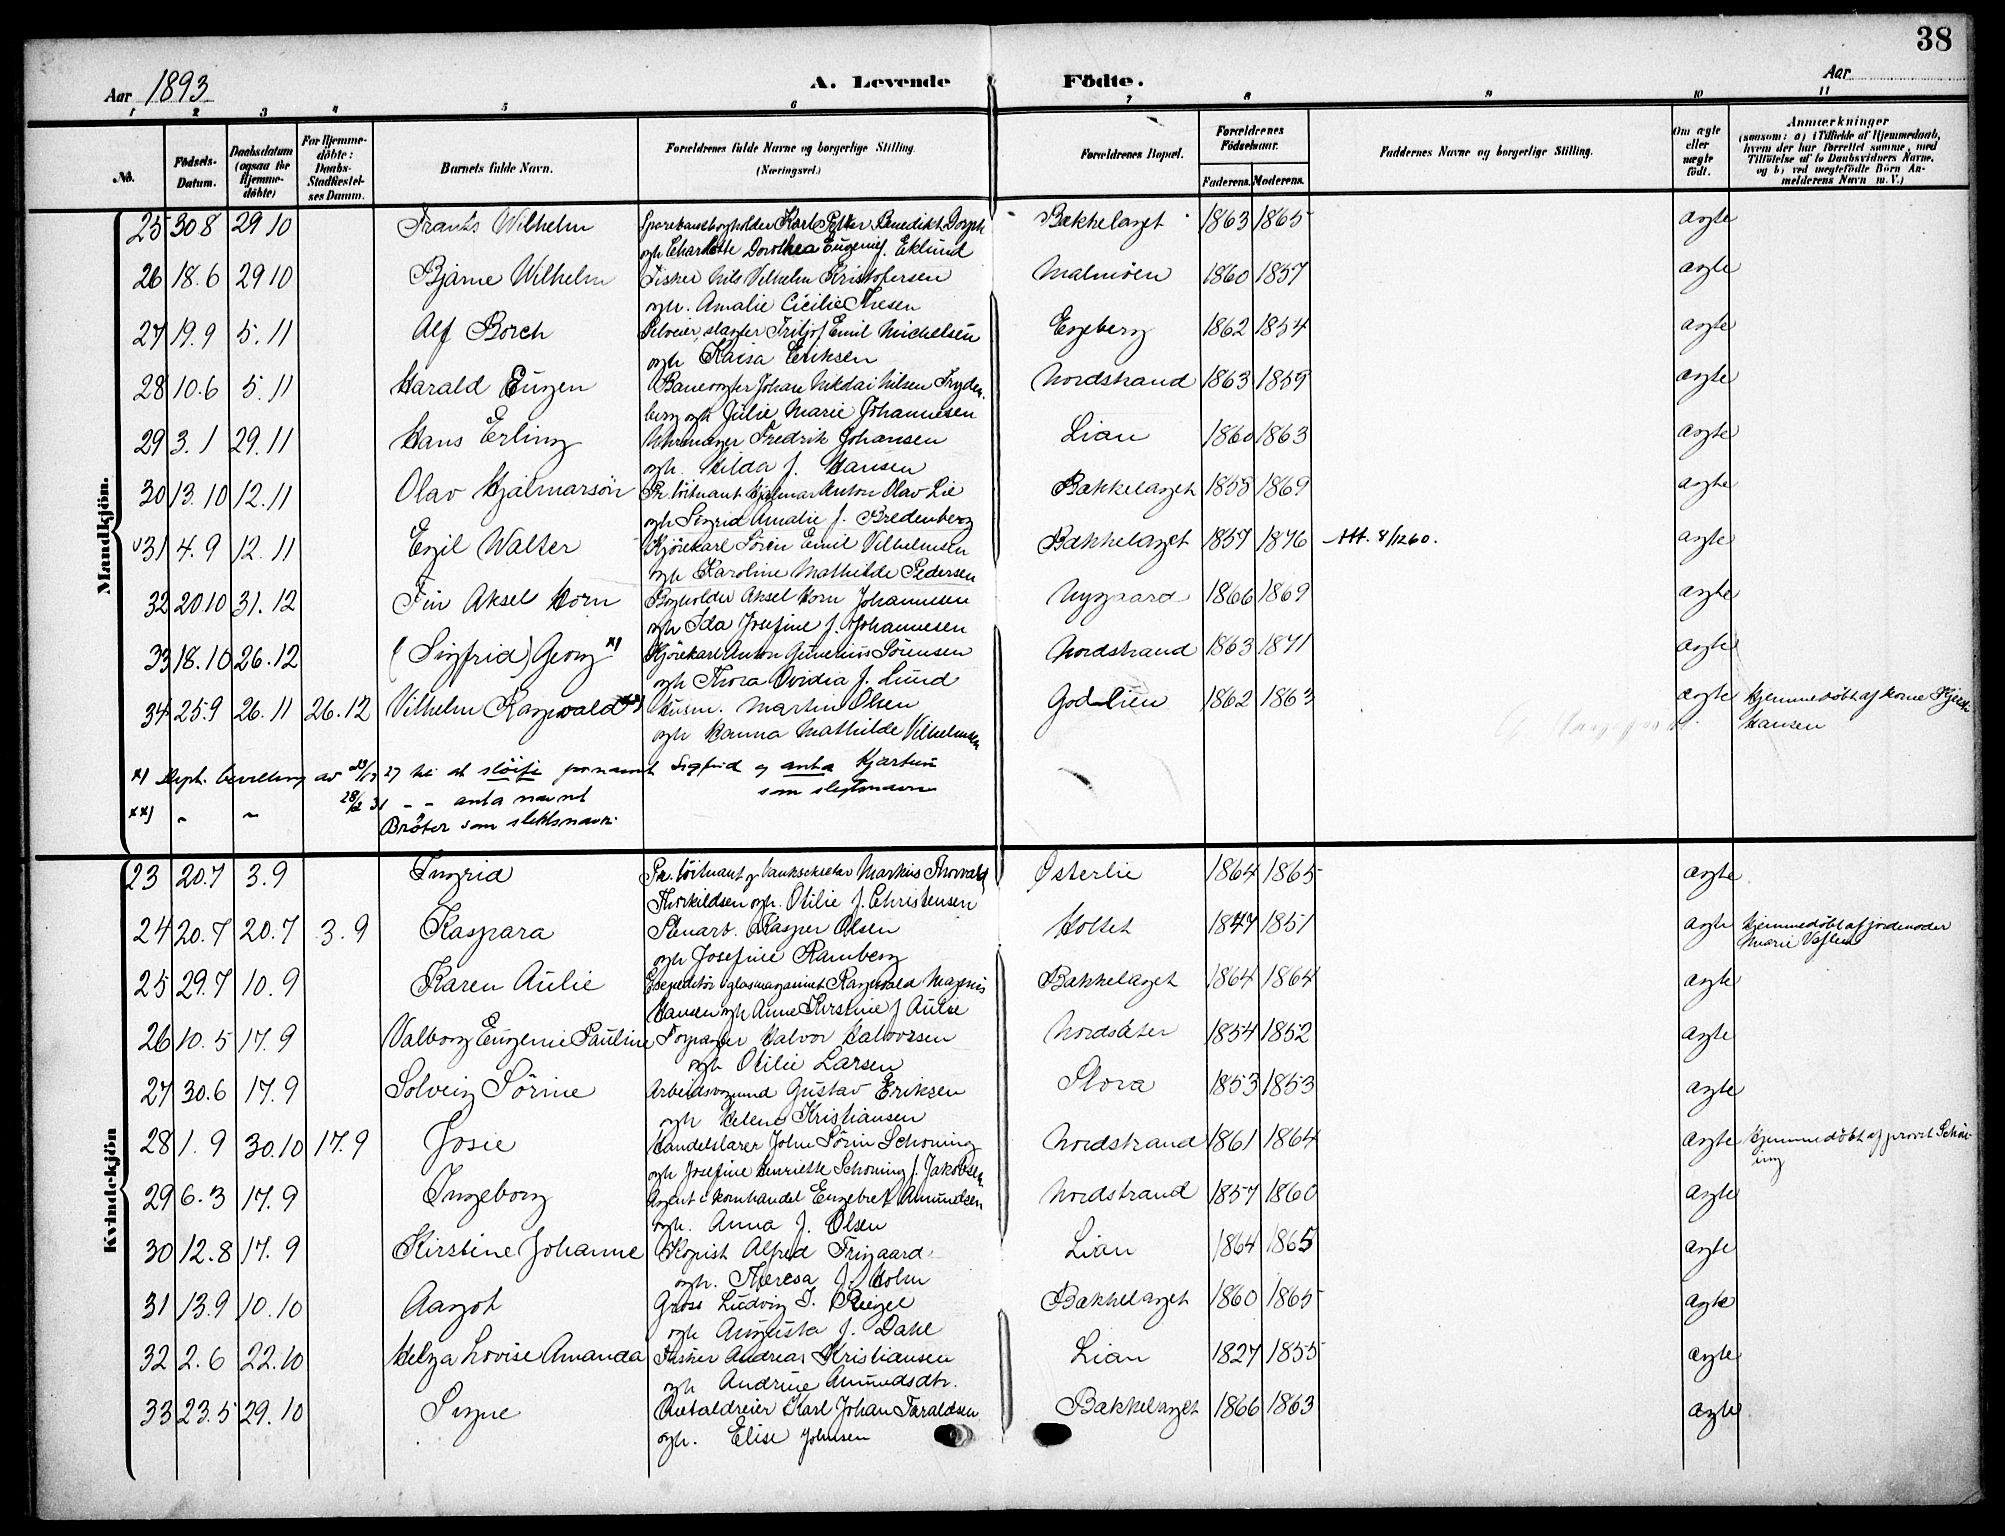 38
Aar 1893 A. Levende Födte. Aar
1 2 3 4 5 6 7 8 9 10 11
No. Födsels-Datum. Daabsdatum (ogsaa for Hjemme-döbte) For Hjemme-döbte: Daabs-Stadfæstel-ses Datum. Barnets fulde Navn. Forældrenes fulde Navne og borgerlige Stilling. (Næringsvei.) Forældrenes Bopæl. Forældrenes Födselsaar. Faderens. Moderens. Faddernes Navne og borgerlige Stilling. Om ægte eller uægte födt. Anmærkninger (saasom: a) i Tilfælde af Hjemmedaab, hvem der har forrettet samme, med Tilföielse af to Daabsvidners Navne, og b) ved uægtefödte Börn An-melderens Navn m. V.)
Mandkjön.
25 30 8 29 10 Frants Wilhelm Sparebankbogholder Karl Petter Benedikt Dorph Bækkelaget 1863 1865 ægte
og h Charlotte Dorothea Eugenie f. Eklund
26 18.6 29 10 Bjarne Wilhelm Fisker Nils Vilhelm Kristofersen Malmöen 1860 1857 ægte
og h. Amalie Cicilie Thesen
27 19.9 5.11 Alf Borch Selveier, slagter Fritjof Emil Michelsen Engeberg 1862 1854 ægte
og h Kaisa Eriksen
28 10.6 5.11 Harald Eugen Banevogter Johan Nikolai Nilsen Fryden- Nordstrand 1863 1859 ægte
berg og h Julie Marie Johannesen
29 3.1 29.11 Hans Erling Uhrmager Fredrik Johansen Lian 1860 1863 ægte
og h. Hilda f. Hansen
30 13.10 12.11 Olav Hjalmarsön Pr. löitnant Hjalmar Anton Olav Lie Bækkelaget 1855 1869 ægte
og h Sigrid Amalie f. Bredenberg
31 4.9 12.11 Egil Walter Kjörekarl Sören Emil Vilhelmsen Bækkelaget 1857 1876 Att. 8/1260. ægte
og h Karoline Mathilde Pedersen
32 20 10 31.12 Fin Aksel Horn Bogholder Aksel Horn Johannesen Nygaard 1866 1869 ægte
og h Ida Josefine f. Johannesen
33 18.10 26.12 (Sigfrid) Georg x) Kjörekarl Anton Gunerius Sörensen Nordstrand 1863 1871 ægte
og h Thora Ovidia f. Lund
34 25.9 26.11 26.12 Vilhelm Ragnvald xx) Husm. Martin Olsen Godlien 1862 1863 ægte Hjemmedöbt af kone
og h Hanna Mathilde Vilhelmsen Hansen
x) Dept. bevilling av 27 til at slöife fornavnet Sigfrid og anta Kjærtun
som slegtsnavn
xx) 28/ 31 - - anta navnet
Bråter som slektsnavn.
Kvindekjön
23 20.7 3.9 Ingrid Pr. löitnant og banksekretær Markus Thorvald Østerlie 1864 1865 ægte
Thorkildsen og h. Otilie f. Christensen
24 20.7 20.7 3.9 Kaspara Stenarb. Kasper Olsen Holtet 1847 1851 ægte Hjemmedöbt af jordemoder
og h Josefine Ramberg Marie
25 29.7 10.9 Karen Aulie Expeditör i glasmagasinet Ragnvald Magnus Bækkelaget 1864 1864 ægte
Hansen og h Anne Kirstine f Aulie
26 10.5 17.9 Valborg Eugenie Pauline Halvor Halvorsen Nordsäter 1854 1852 ægte
og h Otilie Larsen
27 30.6 17.9 Solveig Sörine Arbeidsformand Gustav Eriksen Stora 1853 1853 ægte
og h Helene Kristiansen
28 1.9 30.10 17.9 Josie Handelslærer John Sörin Schöning Nordstrand 1861 1864 ægte Hjemmedöbt af provst Schön-
og h Josefine Henriette Schöning f. Jakobsen ing
29 6.3 17.9 Ingeborg Agent i kornhandel Engebret Amundsen Nordstrand 1857 1860 ægte
og h. Anna f. Olsen
30 12.8 17.9 Kirstine Johanne Kopist Alfred Frigaard Lian 1864 1865 ægte
og h. Theresa f. Holm
31 13.9 10.10 Aagot Gross Ludvig J. Riegel Bækkelaget 1860 1865 ægte
og h Augusta f. Dahl
32 2.6 22.10 Helga Lovise Amanda Fisker Andreas Kristiansen Lian 1827 1855 ægte
og h Andrine Amundsdtr.
33 23.5 29.10 Signe Karl Johan Taraldsen Bækkelaget 1866 1863 ægte
og h. Elise Johnsen